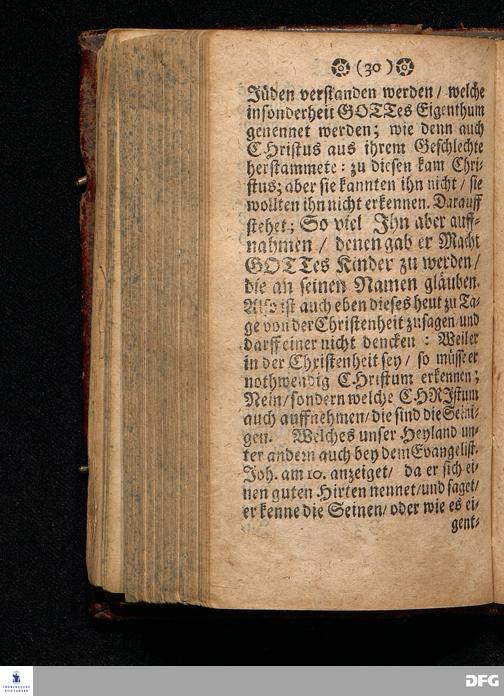 (30)
Jüden verstanden werden / welche
insonderheit GOTTes Eigenthum
genennet werden; wie denn auch
CHristus aus ihrem Geschlechte
herstammete: zu diesen kam Chri-
stus; aber sie kannten ihn nicht / sie
wollten ihn nicht erkennen. Darauff
stehet; So viel Ihn aber auff-
nahmen / denen gab er Macht
GOTTes Kinder zu werden /
die an seinen Namen gläuben.
Also ist auch eben dieses heut zu Ta-
ge von der Christenheit zusagen / und
darff einer nicht dencken: Weil er
in der Christenheit sey / so müsse er
nothwendig CHristum erkennen;
Nein / sondern welche CHRIstum
auch auffnehmen / die sind die Seini-
gen. Welches unser Heyland un-
ter andern auch bey dem Evangelist.
Joh. am 10. anzeiget / da er sich ei-
nen guten Hirten nennet / und saget /
er kenne die Seinen / oder wie es ei-
gent-
FRANCKESCHE
STIFTUNGEN
DFG